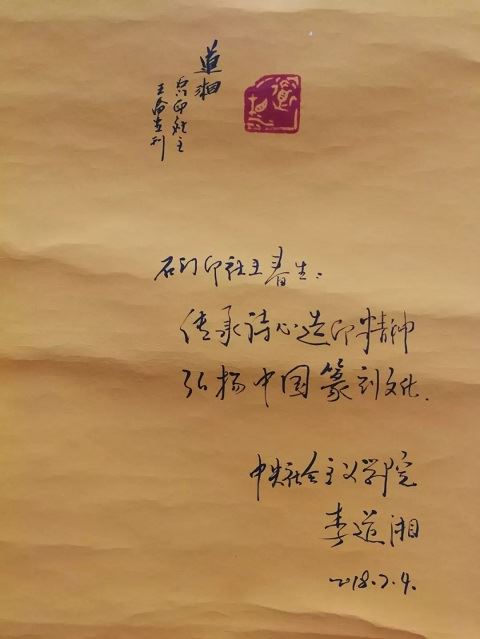 道湘
石门印社王春生：
传承诗心造印精神
弘扬中国篆刻文化.
中央社会主义学院
李道湘
2018.7.4.